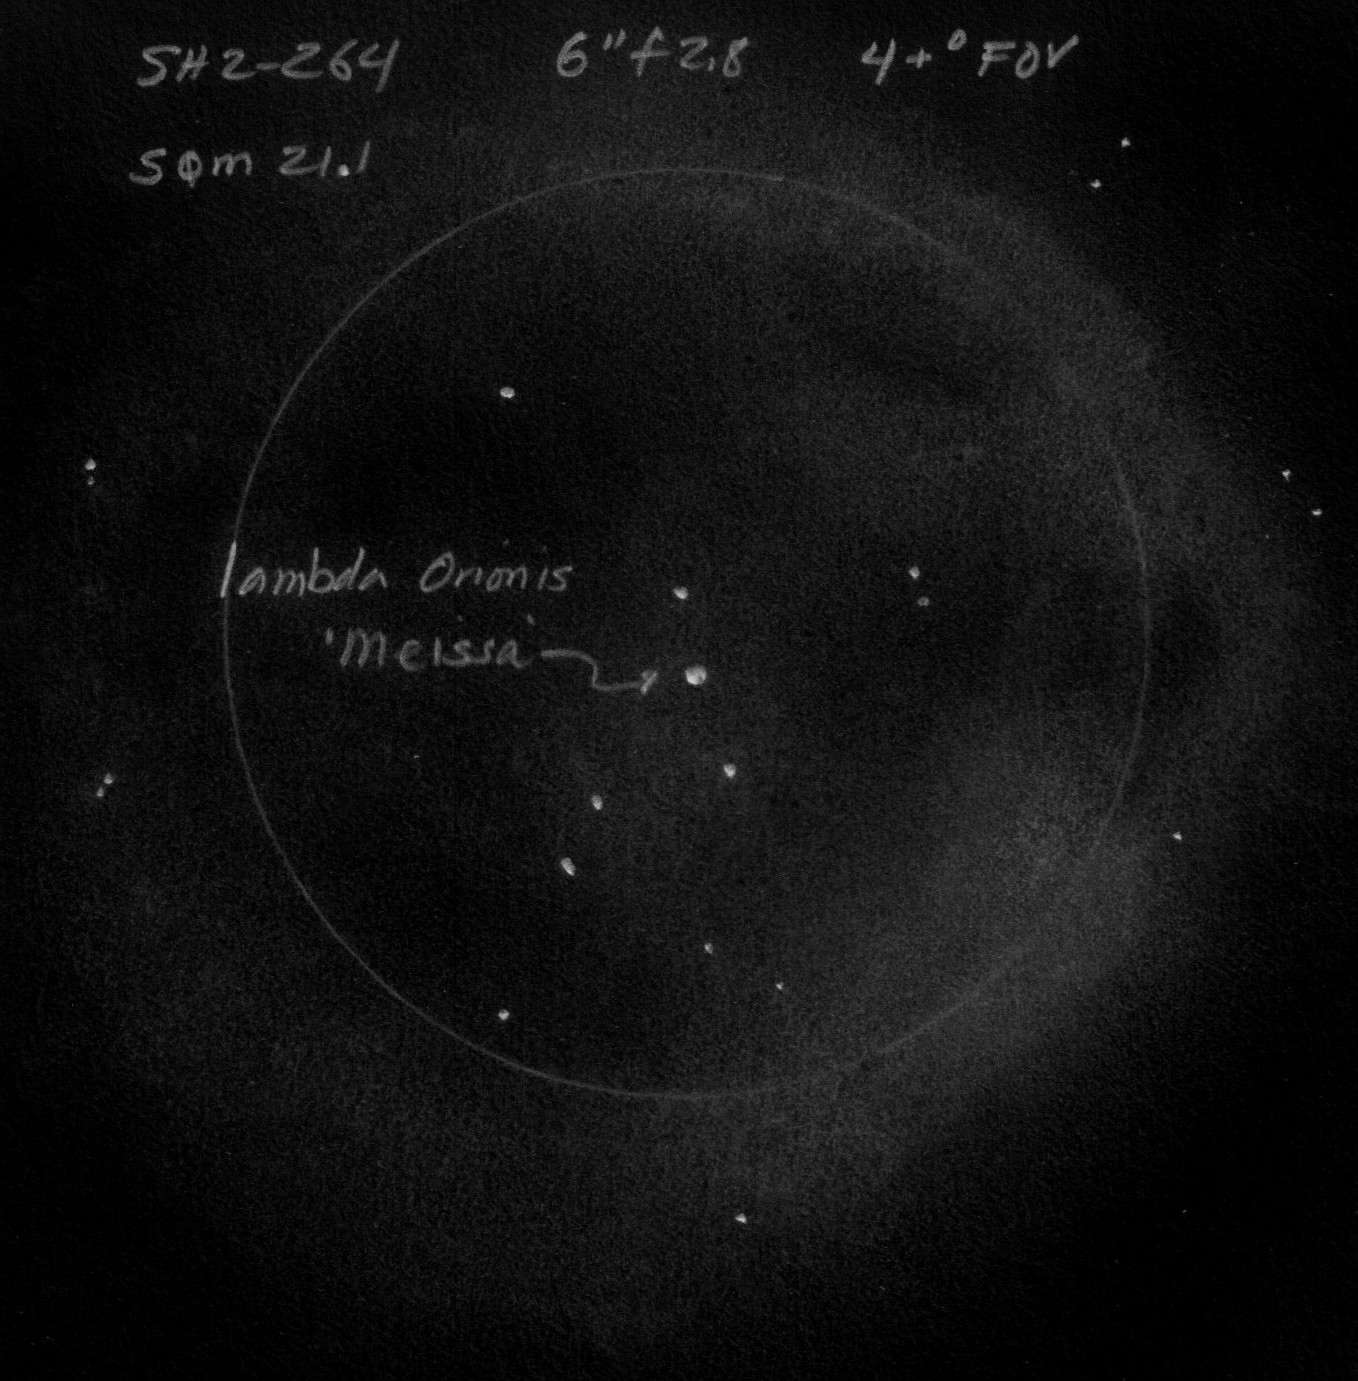 SH2-264 6" f2.8 4+° FOV
SQM 21.1
lambda Orionis
'Meissa'